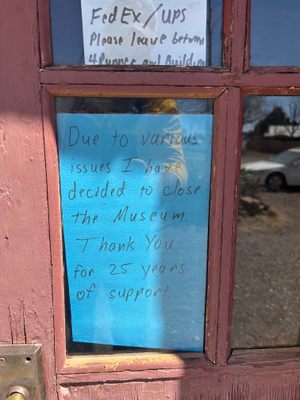 FedEx/UPS
Please leave between
4Runner and Building
Due to various
issues I have
decided to close
the Museum.
Thank You
for 25 years
of support